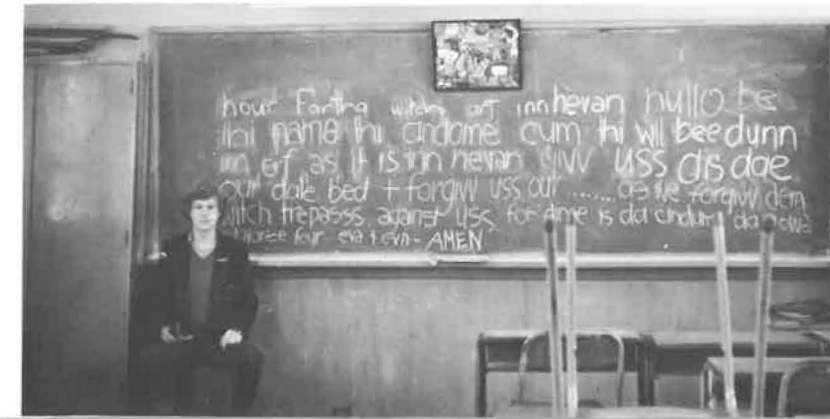 hour Fartha witch art inn hevan hullo be
thi name thi cindome cum thi wil bee dunn
inn erf as it is inn hevan giv uss dis dae
our dale bed + forgivv uss our ...... as we forgivv dem
witch trepasss against uss for dine is da cindum da
four eva + evn - AMEN